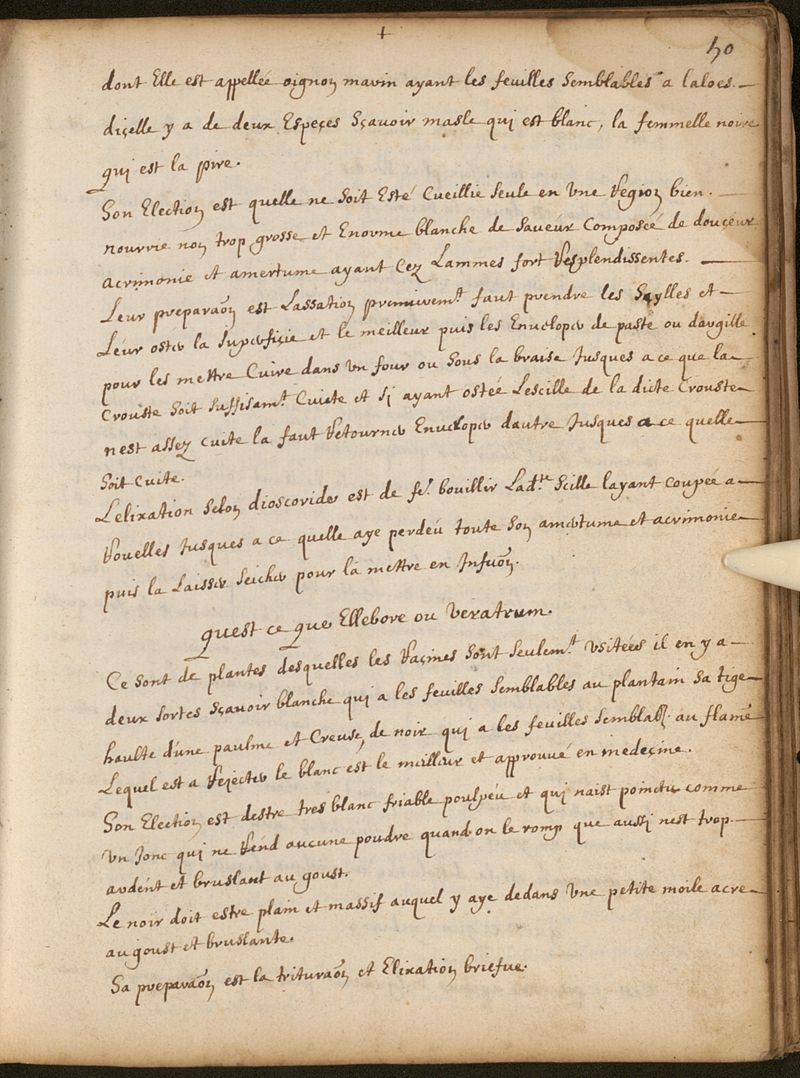 +
50
dont Elle est appellée oignon marin ayant les feuilles semblables a laloes.
diçelle y a de deux Espeçes Sçavoir masle qui est blanc, la femmelle noire
qui est la pire.
Son Election est quelle ne soit Esté Cueillie seule en Une Region bien.
nourrie non trop grosse et Enorme blanche de saveur Composéé de douçeur
acrimonie et amertume ayant Cez Lammes fort Resplendissentes.
Leur preparaõn est Lassation premierem.t faut prendre les Scylles et
Leur oster la superfiçie et le meilleur puis les Enveloper de paste ou dargille
pour les mettre Cuire dans un four ou sous la braise Jusques a ce que la
Crouste soit suffisam.t Cuicte et si ayant ostéé Lescille de la dicte Crouste
nest assez cuite la faut Retourner Enveloper dautre Jusques a ce quelle
soit cuite.
Lelixation selon dioscoride est de fe.r bouillir Lad.te Scille layant coupéé a
Rouelles Jusques a ce quelle aye perdeu toute son amertume et acrimonie
puis la Laisser seicher pour la mettre en Infuõn.
quest ce que Ellebore ou Veratrum.
Ce sont de plantes desquelles les Raçines sont seulem.t usitéés il en y a
deux sortes sçavoir blanche qui a les feuilles semblables au plantain sa tige
haulte d'une paulme et Creuse, de noir qui a les feuilles semblabl. au flame
Lequel est a Rejecter le blanc est le meilleur et approuué en medeçine.
Son Election est destre tres blanc friable poulpeu et qui naist pointu comme
un Jonc qui ne Rend aucune poudre quand on le romp que aussi nest trop
ardent et bruslant au goust.
Le noir doit estre plain et massif auquel y aye dedans Une petite moile acre
au goust et bruslante.
Sa preparaõn est la trituraõn et Elixation briefue.